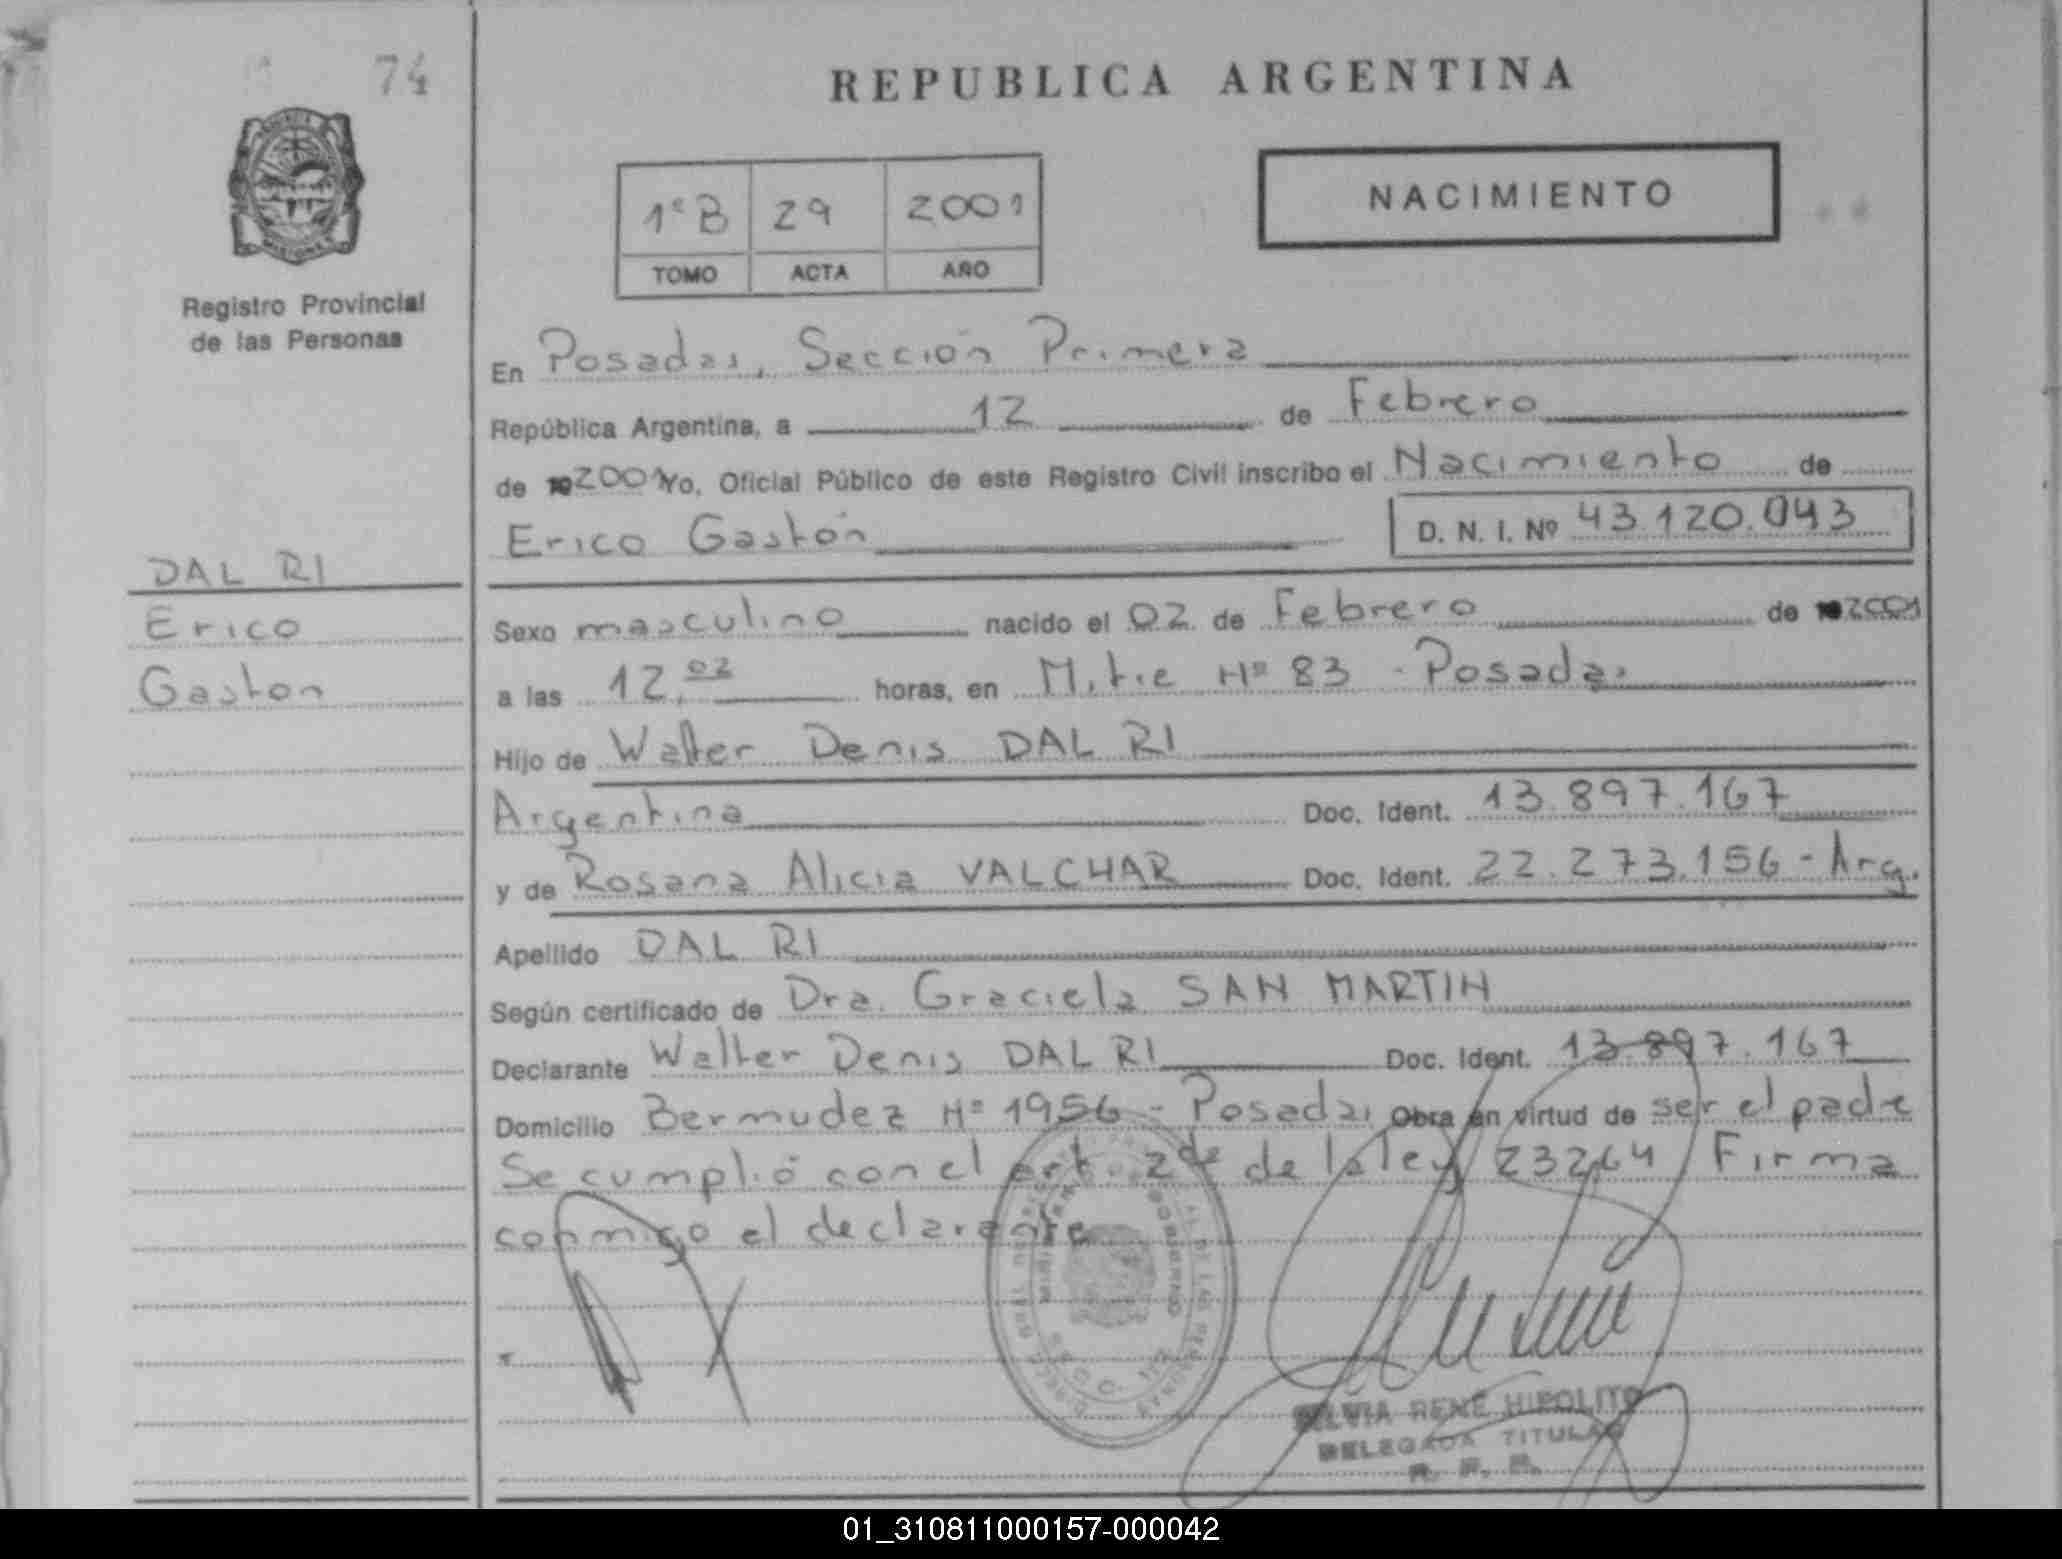 74
REPUBLICA ARGENTINA
NACIMIENTO
1º B 29 2001
TOMO ACTA AÑO
Registro Provincial
de las Personas
En Posadas, Sección Primera
República Argentina, a 12 de Febrero
de 2001 Yo, Oficial Público de este Registro Civil inscribo el Nacimiento de
Erico Gastón D. N. I. Nº 43.120.043
DAL RI
Erico
Gaston
Sexo masculino nacido el 02 de Febrero de 2001
a las 12,02 horas, en Mitre Nº 83 - Posadas
Hijo de Walter Denis DAL RI
Argentina Doc. Ident. 13.897.167
y de Rosana Alicia VALCHAR Doc. Ident. 22.273.156 - Arg.
Apellido DAL RI
Según certificado de Dra. Graciela SAN MARTIN
Declarante Walter Denis DAL RI Doc. Ident. 13.897.167
Domicilio Bermudez Nº 1956 - Posadas Obra en virtud de ser el padre
Se cumplió con el art 2de de la ley 23264 Firma
conmigo el declarante
SILVIA RENE HIPOLITO
DELEGADA TITULAR
R. P. P.
01_310811000157-000042